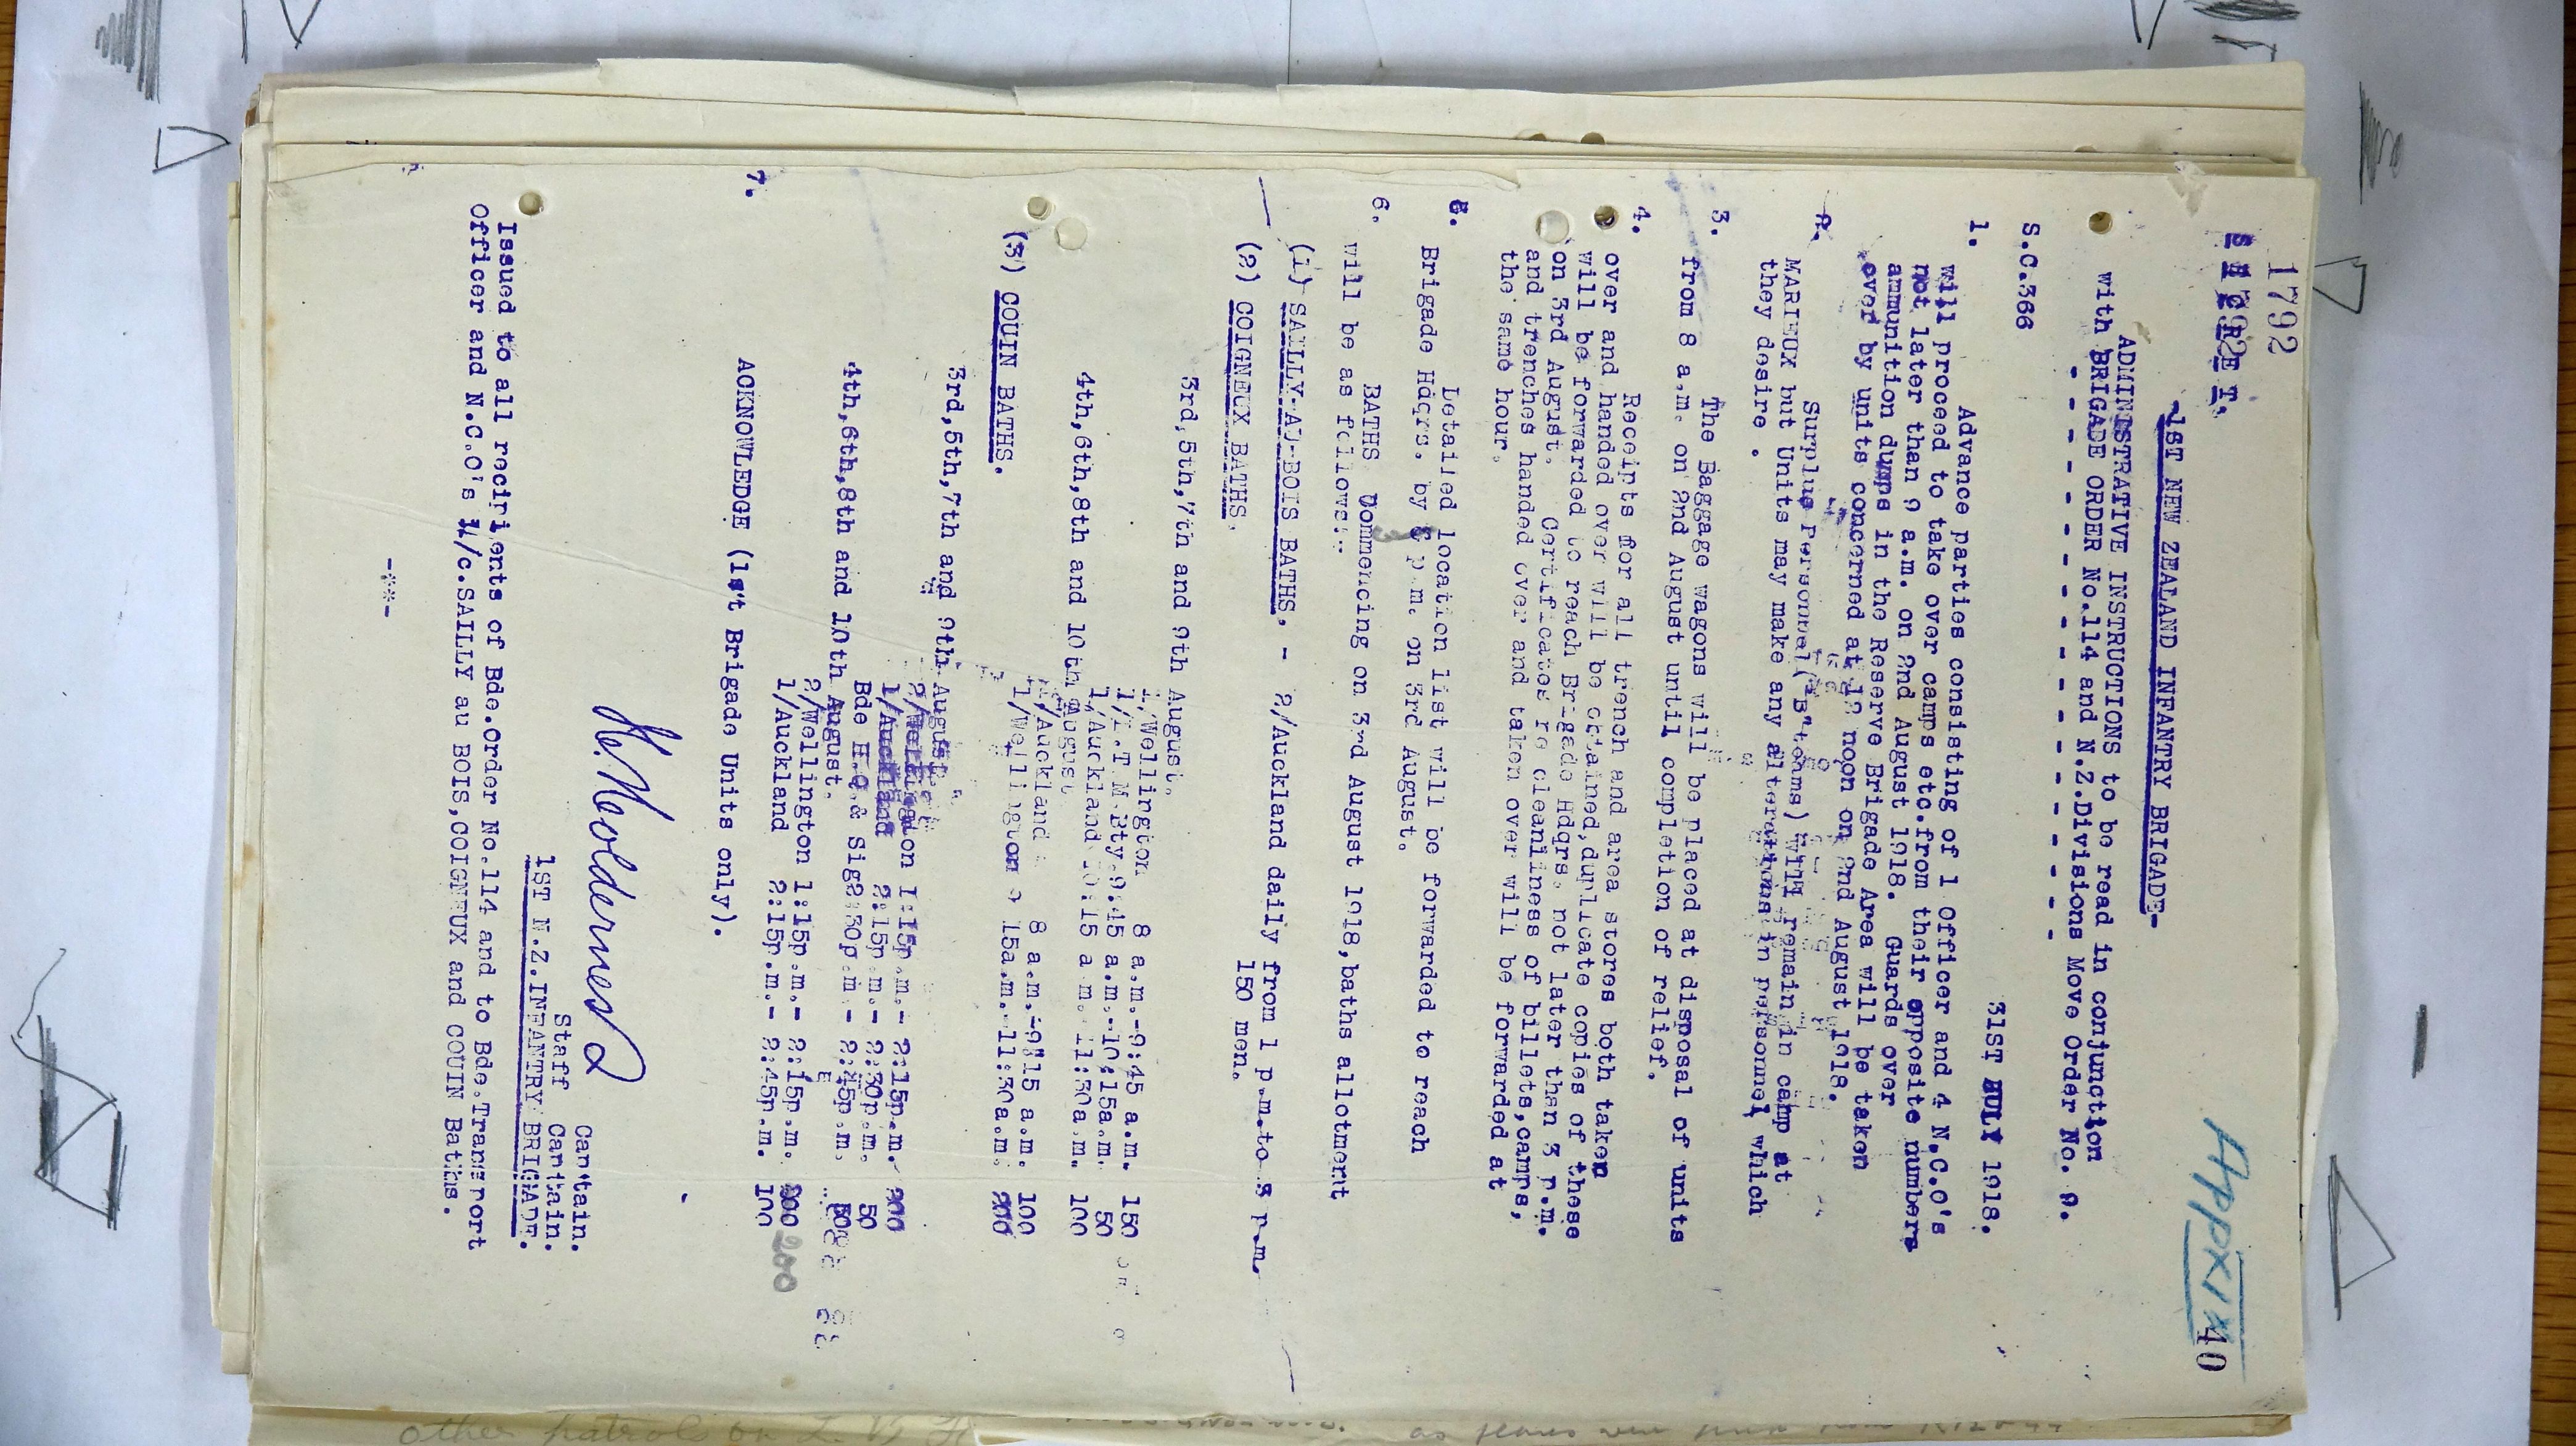 1792
S E C R E T.
Appx IV
40
-1ST NEW ZEALAND INFANTRY BRIGADE-
ADMINISTRATIVE INSTRUCTIONS to be read in conjunction
with BRIGADE ORDER No.114 and N.Z.Divisions Move Order No. 9.
- - - - - - - - - - - - - -
S.C.366
31ST JULY 1918.
1. Advance parties consisting of 1 Officer and 4 N.C.O's
will proceed to take over camps etc.from their opposite numbers
not later than 9 a.m. on 2nd August 1918. Guards over
ammunition dumps in the Reserve Brigade Area will be taken
over by units concerned at 12 noon on 2nd August 1918.
2. Surplus Personnel ("B" teams) will remain in camp at
MARIEUX but Units may make any alterations in personnel which
they desire .
3. The Baggage wagons will be placed at disposal of units
from 8 a.m. on 2nd August until completion of relief.
4. Receipts for all trench and area stores both taken
over and handed over will be obtained,duplicate copies of these
will be forwarded to reach Brigade Hdqrs. not later than 3 p.m.
on 3rd August. Certificates re cleanliness of billets,camps,
and trenches handed over and taken over will be forwarded at
the same hour.
5. Detailed location list will be forwarded to reach
Brigade Hdqrs. by 6 p.m. on 3rd August.
6. BATHS Commencing on 3rd August 1918,baths allotment
will be as follows:-
(i) SAILLY-AU-BOIS BATHS. - 2/Auckland daily from 1 p.m.to 3 p.m.
150 men.
(2) COIGNEUX BATHS.
3rd,5th,7th and 9th August.
1/Wellington 8 a.m.-9:45 a.m. 150
1/L.T.M.Bty.9:45 a.m.-10:15a.m. 50
1/Auckland 10:15 a.m.-11:30a.m. 100
4th,6th,8th and 10th August.
/Auckland 8 a.m.-9:15 a.m. 100
1/Wellington 9:15a.m.-11:30a.m. 200
(3) COUIN BATHS.
3rd,5th,7th and 9th August.
2/Wellington 1:15p.m.- 2:15p.m. 200
1/Auckland 2:15p.m.- 2:30p.m. 50
Bde H.Q.& Sigs 2:30p.m.- 2:45p.m. 50
4th,6th,8th and 10th August.
2/Wellington 1:15p.m.- 2:15p.m. 200 200
1/Auckland 2:15p.m.- 2:45p.m. 100
7. ACKNOWLEDGE (1st Brigade Units only).
Captain.
Staff Captain.
1ST N.Z.INFANTRY BRIGADE.
Issued to all recipients of Bde.Order No.114 and to Bde.Transport
Officer and N.C.O's i/c.SAILLY au BOIS,COIGNEUX and COUIN Baths.
-**-
other patrols on